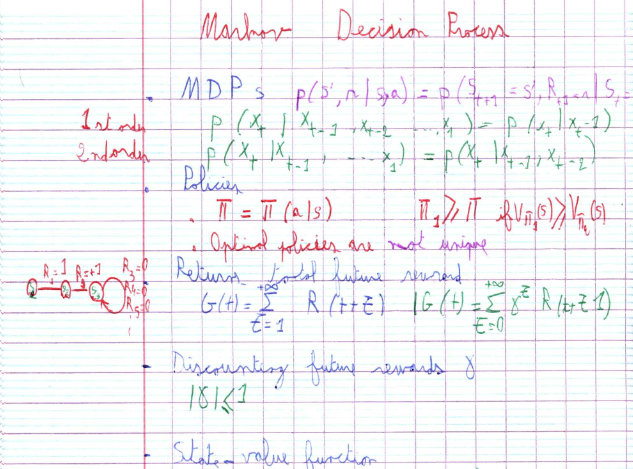 Markov Decision Process
MDPs p(s', r | s,a) = p(S_{t+1} = s', R_{t+1} = r | S_t =
1st order p(x_t | x_{t-1}, x_{t-2} ... x_1) = p(x_t | x_{t-1})
2nd order p(x_t | x_{t-1}, ... x_1) = p(x_t | x_{t-1}, x_{t-2})
Policies
π = π(a|s) π_1 ⩾ π if V_{π_1}(s) ⩾ V_{π_2}(s)
Optimal policies are not unique
Returns total future reward
R_1=1 R_2=+1 R_3=0
R_4=0
R_5=0
G(t) = Σ_{τ=1}^{+∞} R(t+τ) | G(t) = Σ_{τ=0}^{+∞} γ^τ R(t+τ+1)
Discounting future rewards γ
|γ| ⩽ 1
State-value function